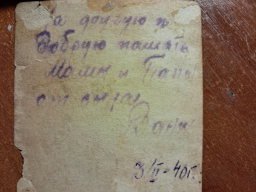 На долгую и
Добрую память
Маме и Папе
от сына
Вани
3/II-40г.